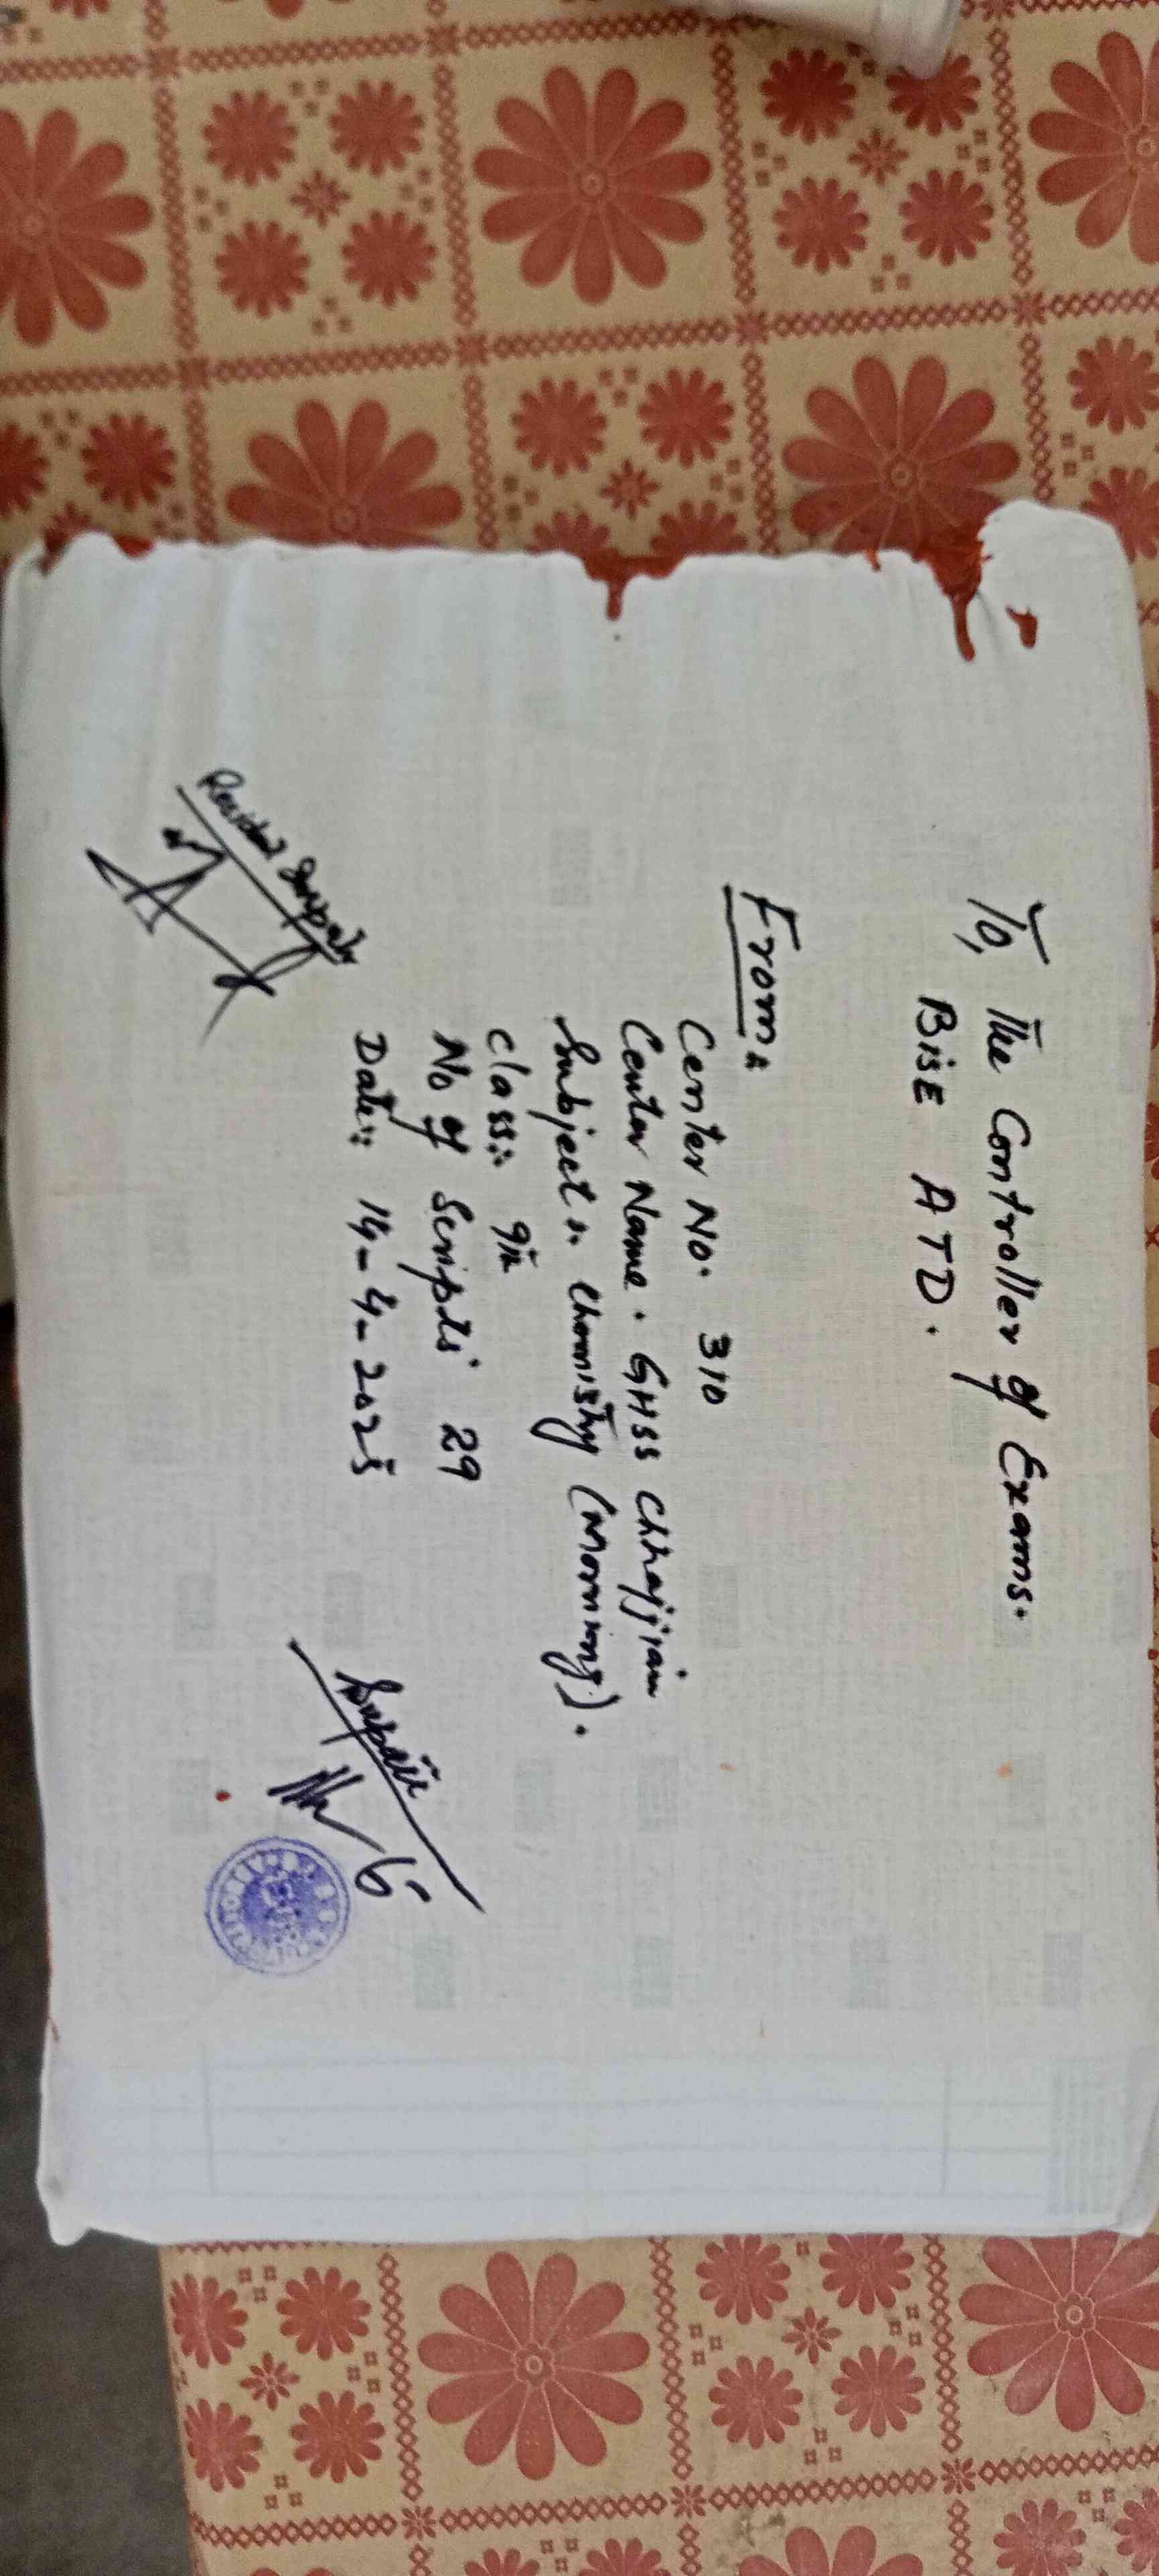 To, The Controller of Exams.
BISE ATD.
From:
Center No. 310
Center Name. GHSS Chhajjian
Subject:. Chemistry (Morning).
Class:. 9th
No of Scripts 29
Date:. 14-4-2025
Resident Supdtt
Supdtt